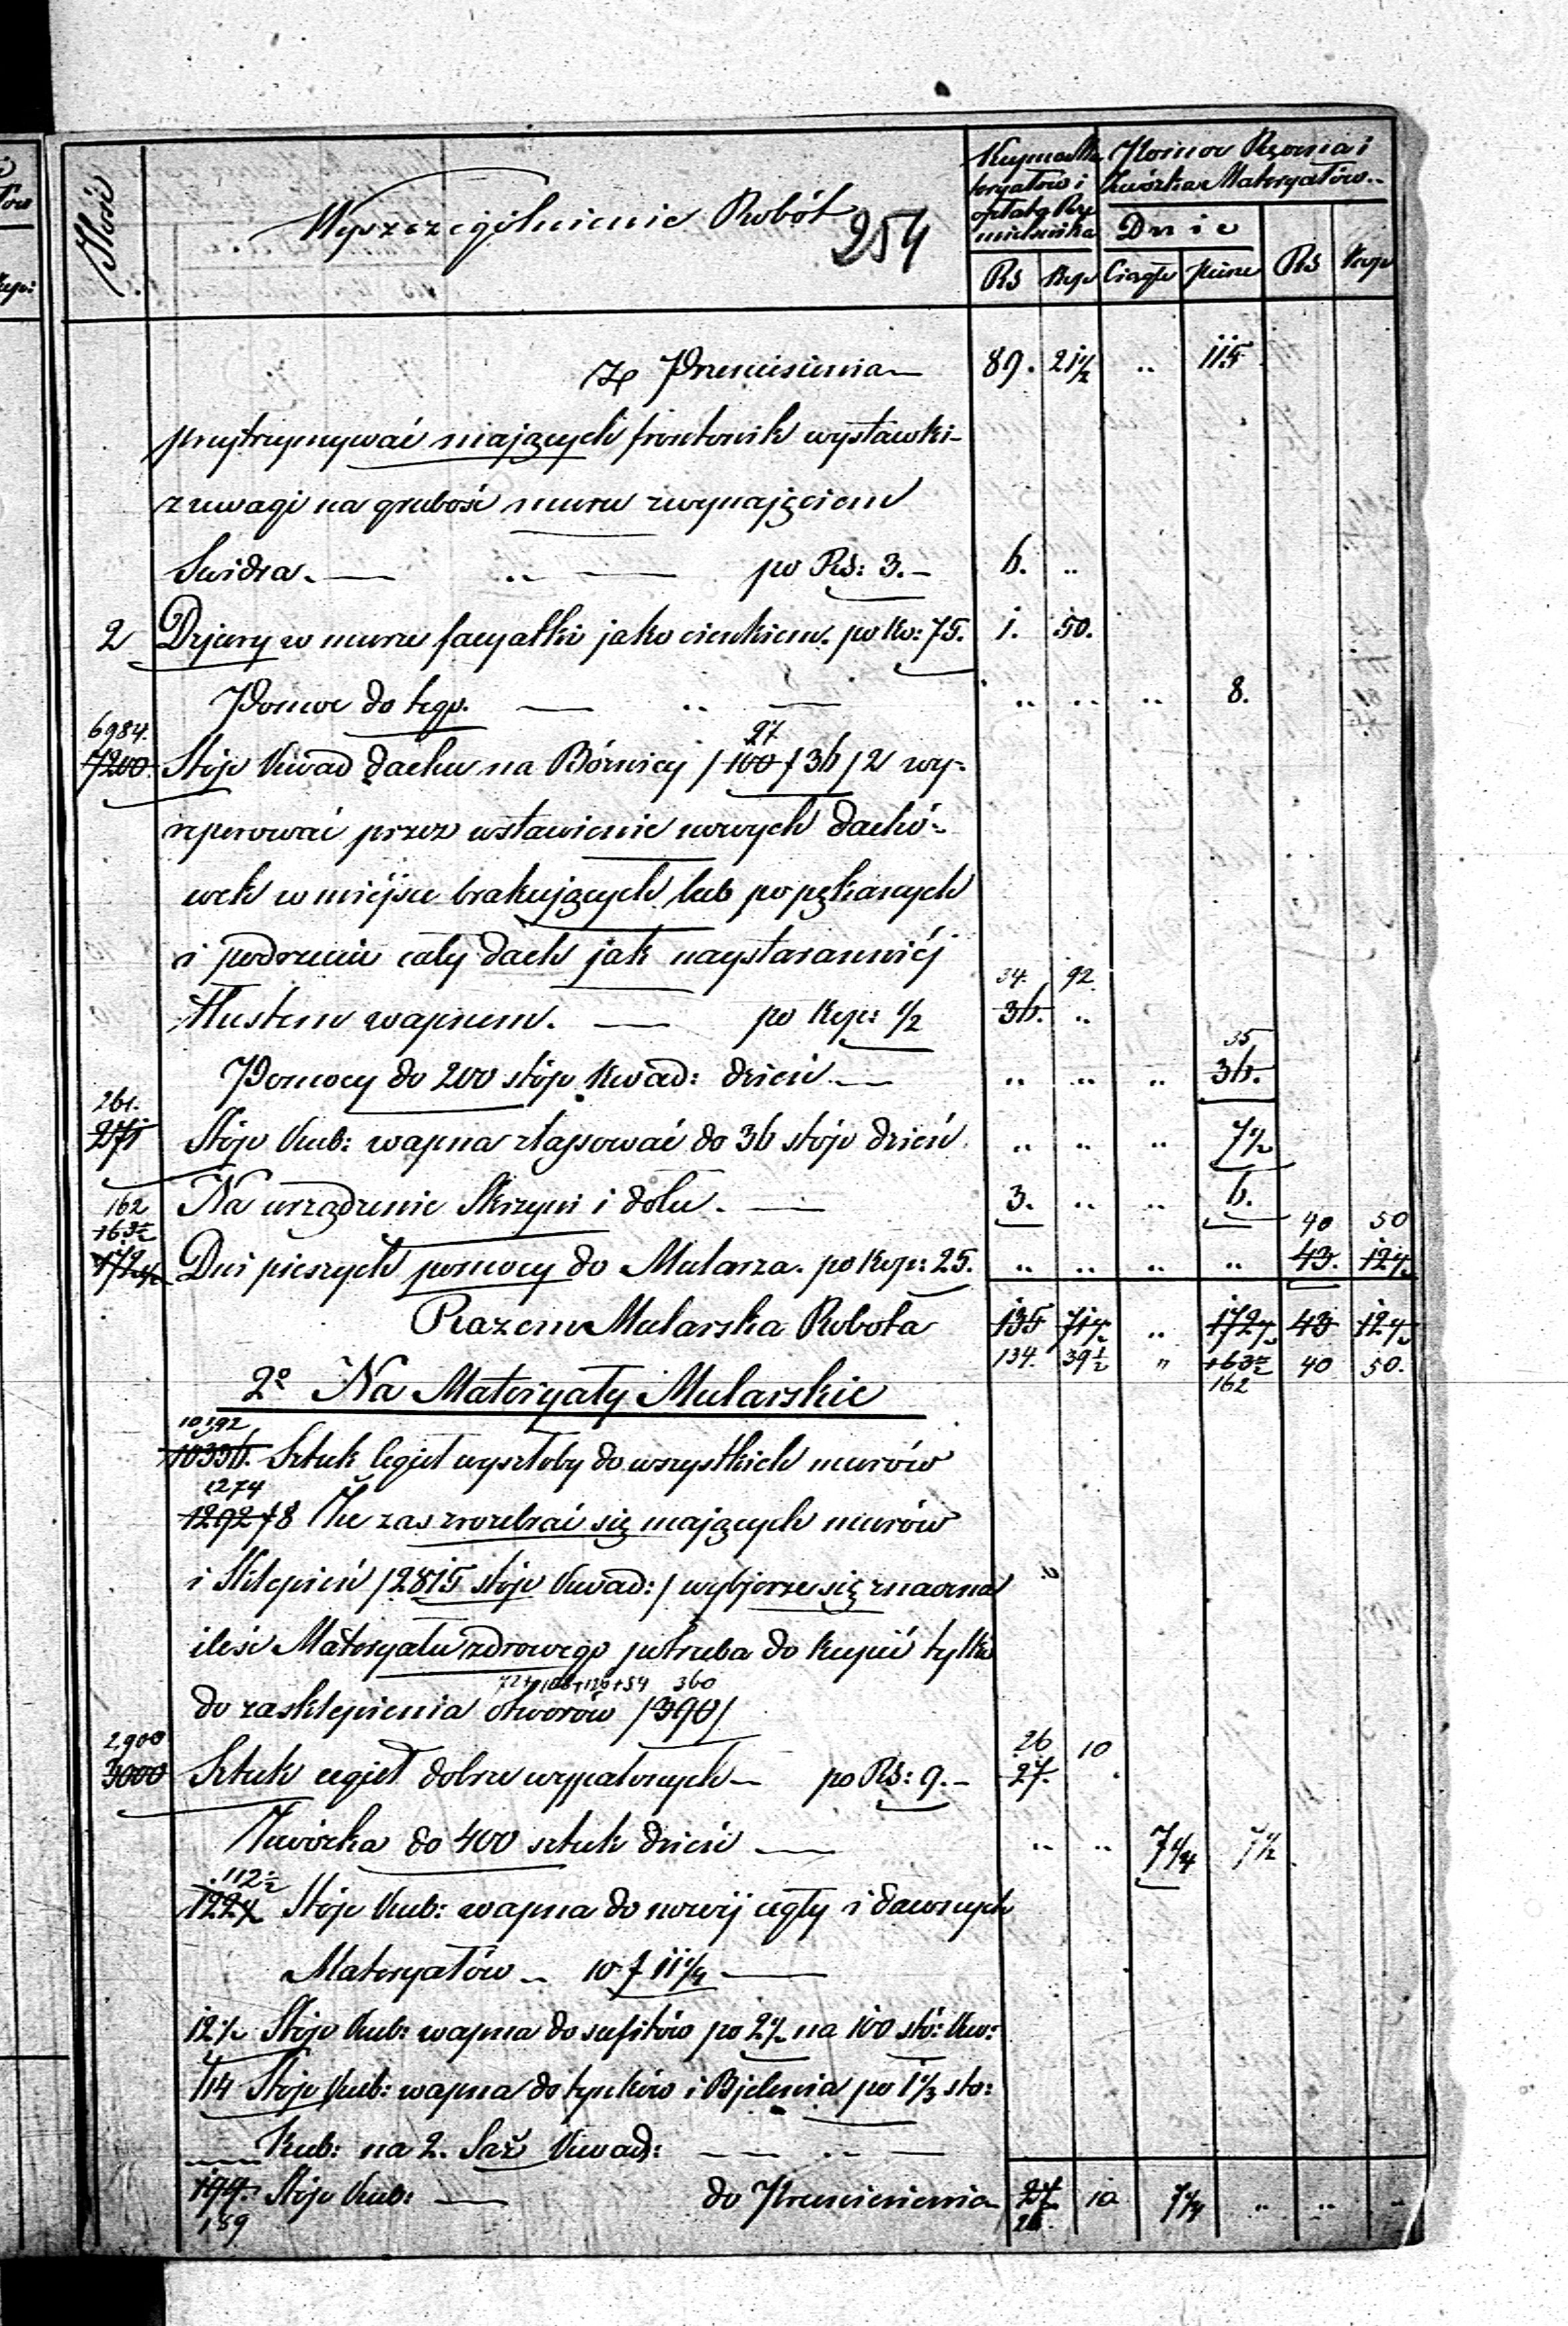 Ilość
Wyszczególnienie Robót
254
Kupno Ma
teryałów i
opłata Rze
mieślnika
Pomoc Ręczna i
Zwózka Materyałów
Dnie
Rs Kop Ciągłe piesze Rs Kop
Z Przeniesienia 89. 21 1/2 .. 115
przytrzymywać mających frontonik wystawki
z uwagi na grubość muru z wynajęciem
Swidra. .. po Rs: 3. 6. ..
2 Dziury w murze facyatki jako cienkiem. po Ko: 75. 1. 50.
Pomoc do tego. .. .. .. .. 8.
6984. 97
7200. Stóp Kwad dachu na Bóżnicy /100 / 36 / 2 wy-
reperować przez wstawienie nowych dachó-
wek w miejscu brakujących lub popękanych
i podrzucić cały dach jak naystaranniéj
34. 92.
tłustem wapnem. po Kop: 1/2 36. ..
35
Pomocy do 200 stóp Kwad: dzień .. .. .. 36.
261.
271 Stóp Kub: wapna zlasować do 36 stóp dzień .. .. .. 7 1/2
Na urządzenie Skrzyni i dołu. 3. .. .. 6.
162 40 50
163 1/2
172 1/2 Dni pieszych pomocy do Mularza. po Kop: 25. .. .. .. .. 43. 12 1/2
Razem Mularska Robota 135 71 1/2 .. 172 1/2 43 12 1/2
134. 39 1/2 " 163 1/2 40 50.
162
2º Na Materyały Mularskie
10,192
10336. Sztuk Cegieł wyszłoby do wszystkich murów
1274
1292 f 8 Że zaś z rozebrać się mających murów
i Sklepień /2815 stóp Kwad:/ wybjerze się znaczna
ilość Materyału zdrowego potrzeba dokupić tylko
72+108+126+54 360
do zasklepienia otworów /390/
2,900 26 10
3000 Sztuk cegieł dobrze wypalonych po Rs: 9. 27. .
Zwózka do 400 sztuk dzień .. .. 7 1/4 7 1/2
112 1/2
122 1/4 Stóp Kub: wapna do nowéj cegły i dawnych
Materyałów 10 f 11 1/4
12 1/2 Stóp Kub: wapna do sufitów po 2 1/2 na 100 stó: Kw:
Stóp Kub: wapna do tynków i Bjelenia po 1 1/3 sto:
Kub: na 2. Saż Kwad:
199. Stóp Kub: do Przeniesienia 27 10 7 1/4 .. .. ..
189 26.